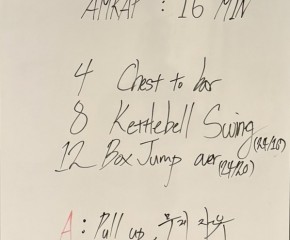 AMRAP : 16 MIN
4 Chest to bar
8 Kettlebell Swing (24/16)
12 Box Jump over (24/20)
A : Pull up, 무게 자유